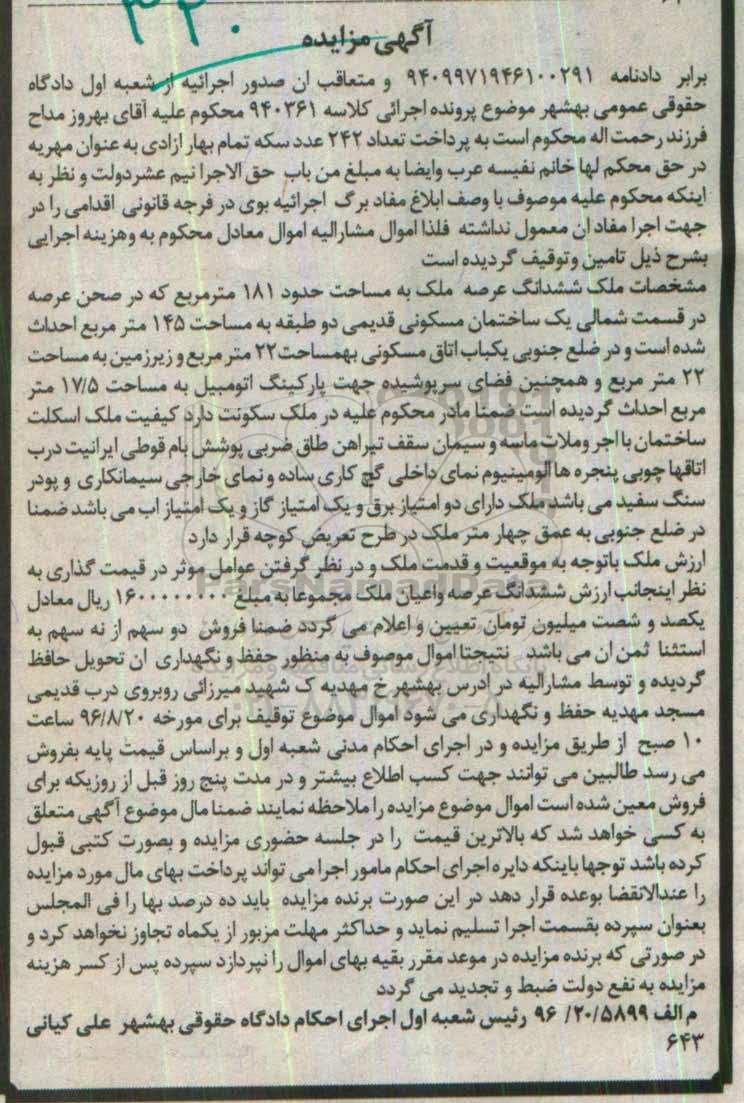 ۳۲۰
آگهی مزایده
برابر دادنامه ۹۴۰۹۹۷۱۹۴۶۱۰۰۲۹۱ و متعاقب ان صدور اجرائیه از شعبه اول دادگاه
حقوقی عمومی بهشهر موضوع پرونده اجرائی کلاسه ۹۴۰۳۶۱ محکوم علیه آقای بهروز مداح
فرزند رحمت اله محکوم است به پرداخت تعداد ۲۴۲ عدد سکه تمام بهار ازادی به عنوان مهریه
در حق محکم لها خانم نفیسه عرب وایضا به مبلغ من باب حق الاجرا نیم عشردولت و نظر به
اینکه محکوم علیه موصوف با وصف ابلاغ مفاد برگ اجرائیه بوی در فرجه قانونی اقدامی را در
جهت اجرا مفاد ان معمول نداشته فلذا اموال مشارالیه اموال معادل محکوم به وهزینه اجرایی
بشرح ذیل تامین وتوقیف گردیده است
مشخصات ملک ششدانگ عرصه ملک به مساحت حدود ۱۸۱ مترمربع که در صحن عرصه
در قسمت شمالی یک ساختمان مسکونی قدیمی دو طبقه به مساحت ۱۴۵ متر مربع احداث
شده است و در ضلع جنوبی یکباب اتاق مسکونی بهمساحت۲۲ متر مربع و زیرزمین به مساحت
۲۲ متر مربع و همچنین فضای سرپوشیده جهت پارکینگ اتومبیل به مساحت ۱۷/۵ متر
مربع احداث گردیده است ضمنا مادر محکوم علیه در ملک سکونت دارد کیفیت ملک اسکلت
ساختمان با اجر وملات ماسه و سیمان سقف تیراهن طاق ضربی پوشش بام قوطی ایرانیت درب
اتاقها چوبی پنجره ها آلومینیوم نمای داخلی گچ کاری ساده و نمای خارجی سیمانکاری و پودر
سنگ سفید می باشد ملک دارای دو امتیاز برق و یک امتیاز گاز و یک امتیاز اب می باشد ضمنا
در ضلع جنوبی به عمق چهار متر ملک در طرح تعریض کوچه قرار دارد
ارزش ملک باتوجه به موقعیت و قدمت ملک و در نظر گرفتن عوامل موثر در قیمت گذاری به
نظر اینجانب ارزش ششدانگ عرصه واعیان ملک مجموعا به مبلغ ۱۶۰۰۰۰۰۰۰۰ ریال معادل
یکصد و شصت میلیون تومان تعیین و اعلام می گردد ضمنا فروش دو سهم از نه سهم به
استثنا ثمن ان می باشد نتیجتا اموال موصوف به منظور حفظ و نگهداری ان تحویل حافظ
گردیده و توسط مشارالیه در ادرس بهشهر خ مهدیه ک شهید میرزائی روبروی درب قدیمی
مسجد مهدیه حفظ و نگهداری می شود اموال موضوع توقیف برای مورخه ۹۶/۸/۲۰ ساعت
۱۰ صبح از طریق مزایده و در اجرای احکام مدنی شعبه اول و براساس قیمت پایه بفروش
می رسد طالبین می توانند جهت کسب اطلاع بیشتر و در مدت پنج روز قبل از روزیکه برای
فروش معین شده است اموال موضوع مزایده را ملاحظه نمایند ضمنا مال موضوع آگهی متعلق
به کسی خواهد شد که بالاترین قیمت را در جلسه حضوری مزایده و بصورت کتبی قبول
کرده باشد توجها باینکه دایره اجرای احکام مامور اجرا می تواند پرداخت بهای مال مورد مزایده
را عندالاتقضا بوعده قرار دهد در این صورت برنده مزایده باید ده درصد بها را فی المجلس
بعنوان سپرده بقسمت اجرا تسلیم نماید و حداکثر مهلت مزبور از یکماه تجاوز نخواهد کرد و
در صورتی که برنده مزایده در موعد مقرر بقیه بهای اموال را نپردازد سپرده پس از کسر هزینه
مزایده به نفع دولت ضبط و تجدید می گردد
م الف ۲۰/۵۸۹۹/ ۹۶ رئیس شعبه اول اجرای احکام دادگاه حقوقی بهشهر علی کیانی
۶۴۳
ParsNamadData